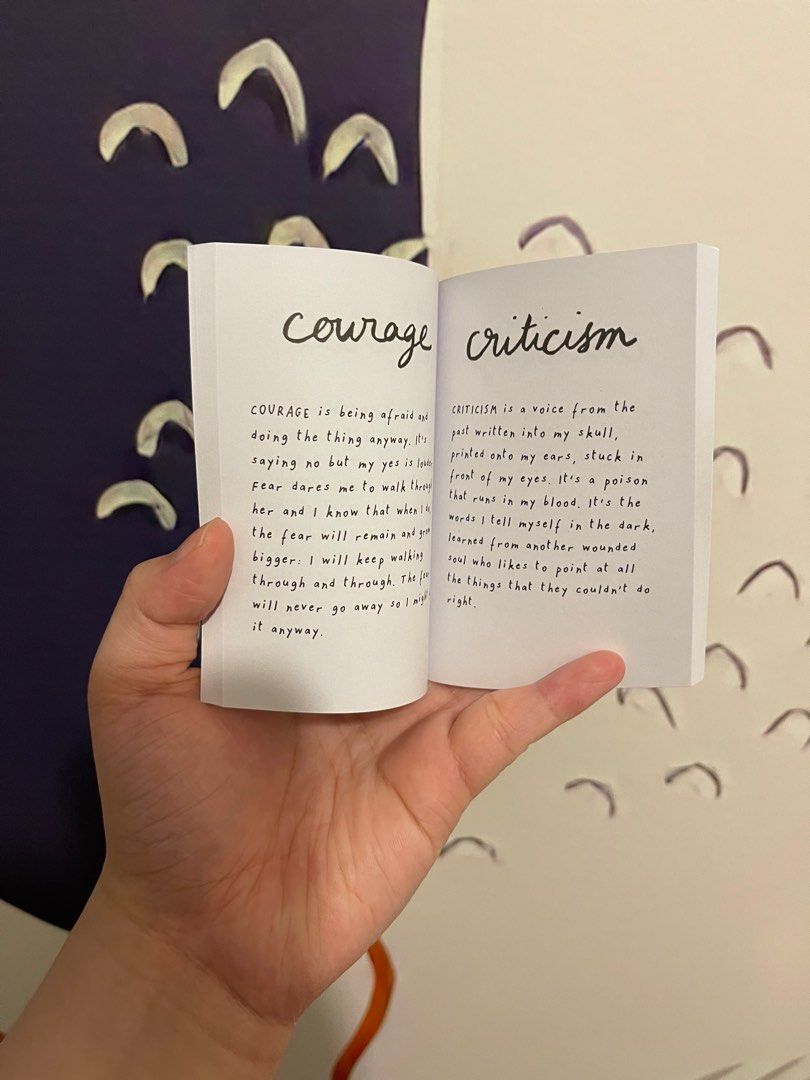 courage
COURAGE is being afraid and
doing the thing anyway. It's
saying no but my yes is louder
Fear dares me to walk through
her and I know that when I do,
the fear will remain and grow
bigger: I will keep walking
through and through. The fear
will never go away so I might
it anyway.
criticism
CRITICISM is a voice from the
past written into my skull,
printed onto my ears, stuck in
front of my eyes. It's a poison
that runs in my blood. It's the
words I tell myself in the dark,
learned from another wounded
soul who likes to point at all
the things that they couldn't do
right.